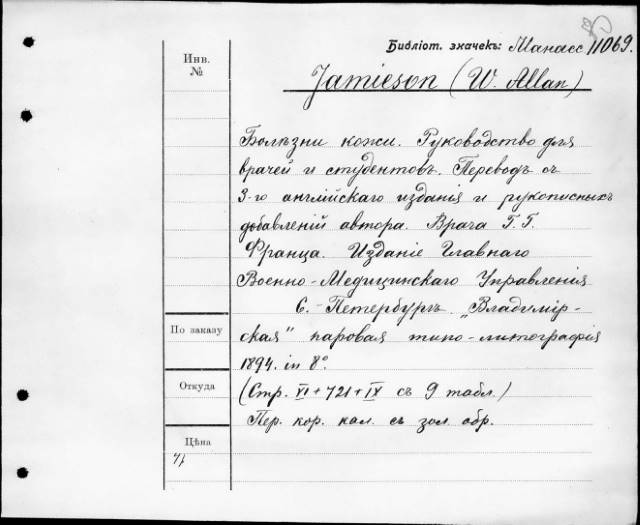 Библіот. значекъ: Манасс 11069.
Инв.
№
Jamieson (W. Allan)
Болѣзни кожи. Руководство для
врачей и студентовъ. Переводъ съ
3-го англійскаго изданія и рукописныхъ
добавленій автора. Врача Г. Г.
Франца. Изданіе Главнаго
Военно-Медицинскаго Управленія
С.-Петербургъ. „Владимір-
ская" паровая типо-литографія
По заказу
1894. in 8°
Откуда
(Стр. VI + 721 + IX съ 9 табл.)
Пер. кор. кал. съ зол. обр.
Цѣна